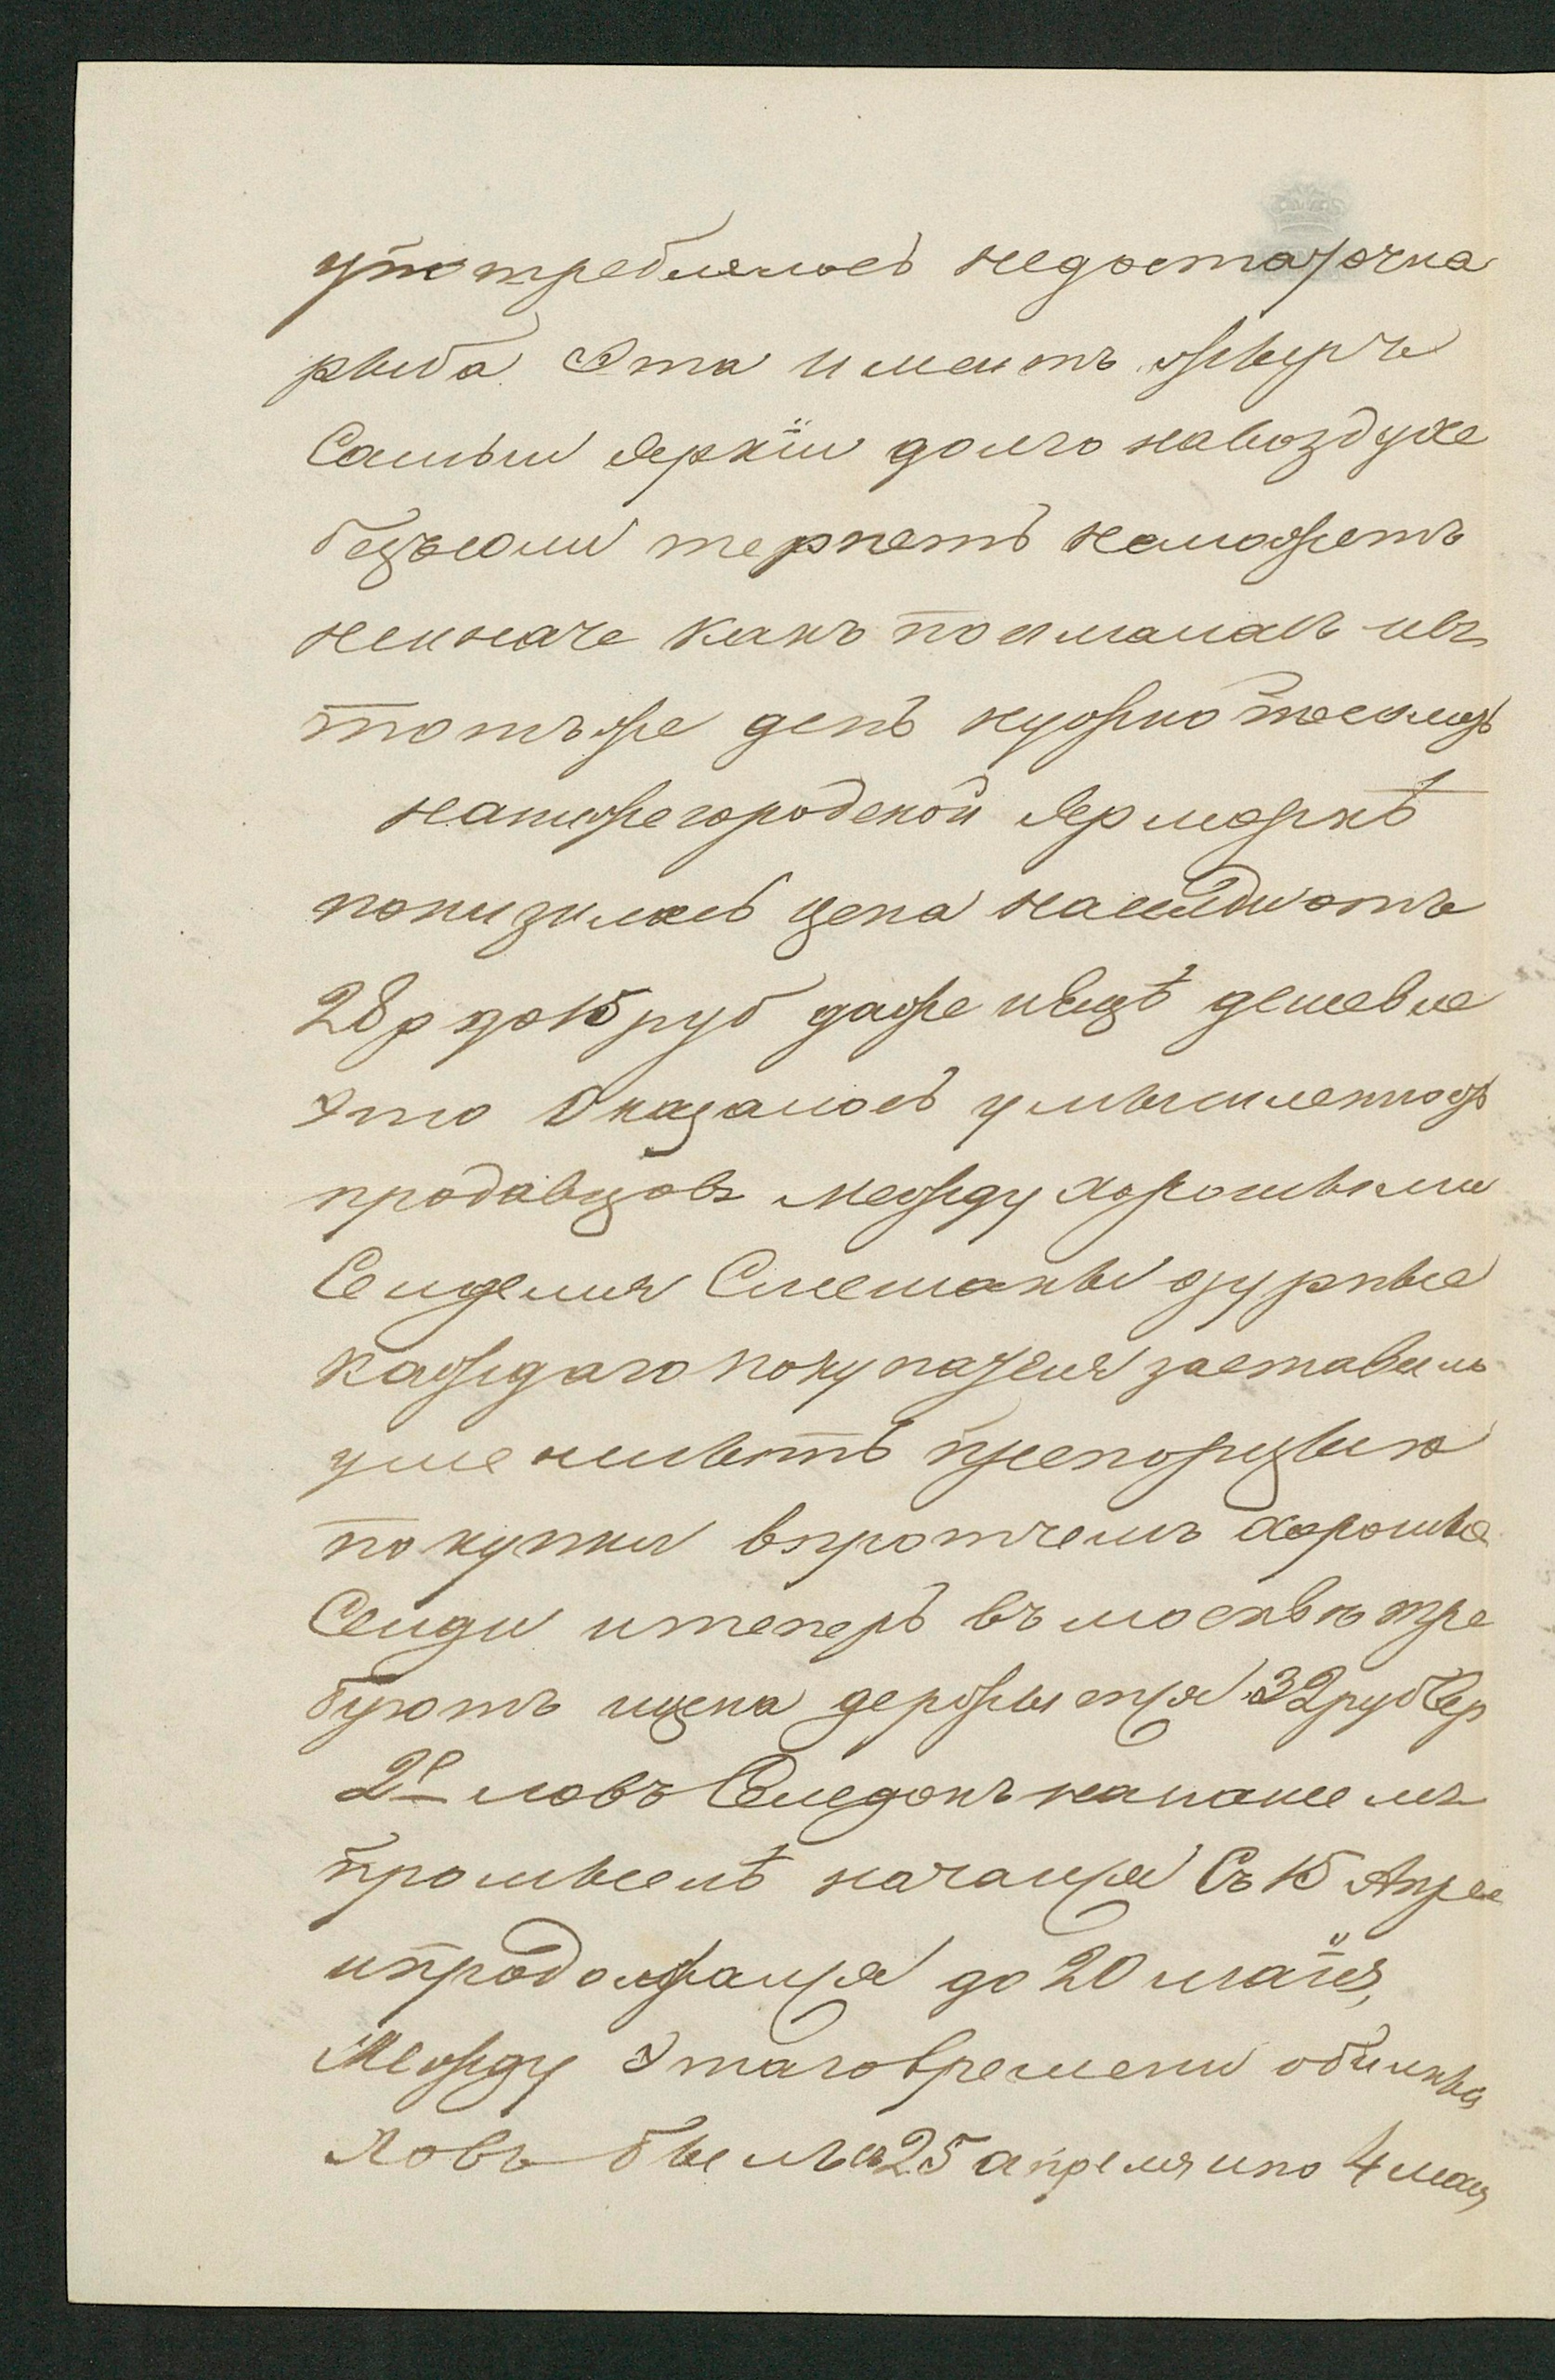 употреблялось недостаточна
рыба Эта имеитъ жыръ
Самыи Яркїи долго навоздухе
безъсоли терпеть неможетъ
неиначе какъ поималась ивъ
тотъже день нужно посолить
нанижегородской Ярмаркѣ
понизилась цена насельди отъ
28 р до 15 руб даже иещѣ дешевле
Это Оказалось умышленность
продавцовъ между хорошыми
Сельделия Смешаны дурные
каждаго покупателя заставило
уменишыть препорцыю
покупки впротчемъ хорошые
Селди итеперь въ москвы тре
буютъ ицена держытся 32 руб Сер
2е ловъ Селедокъ нанашемъ
промыслѣ начался Съ 15 Апреля
ипродолжался до 20 маїя,
Между Этаговремени обилны
Ловъ былъ с 25 апреля ипо 4 мая